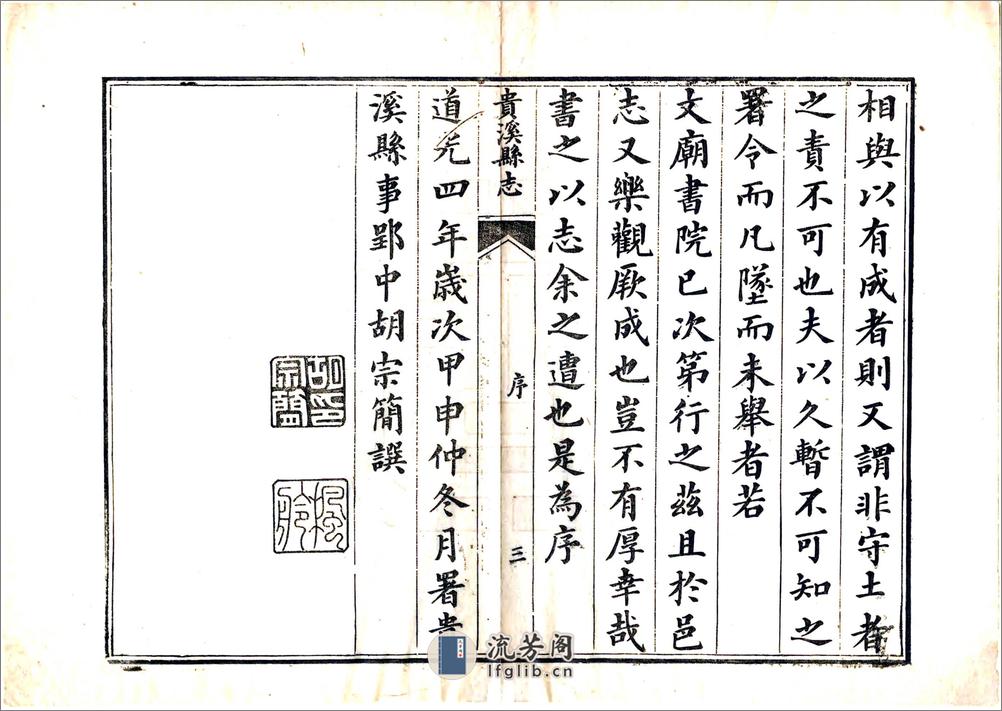 相與以有成者則又謂非守土者
之責不可也夫以久暫不可知之
署令而凡墜而未舉者若
文廟書院已次第行之茲且於邑
志又樂觀厥成也豈不有厚幸哉
書之以志余之遭也是為序
貴溪縣志
序
三
道光四年歲次甲申仲冬月署貴
溪縣事郢中胡宗簡譔
流芳阁
lfglib.cn